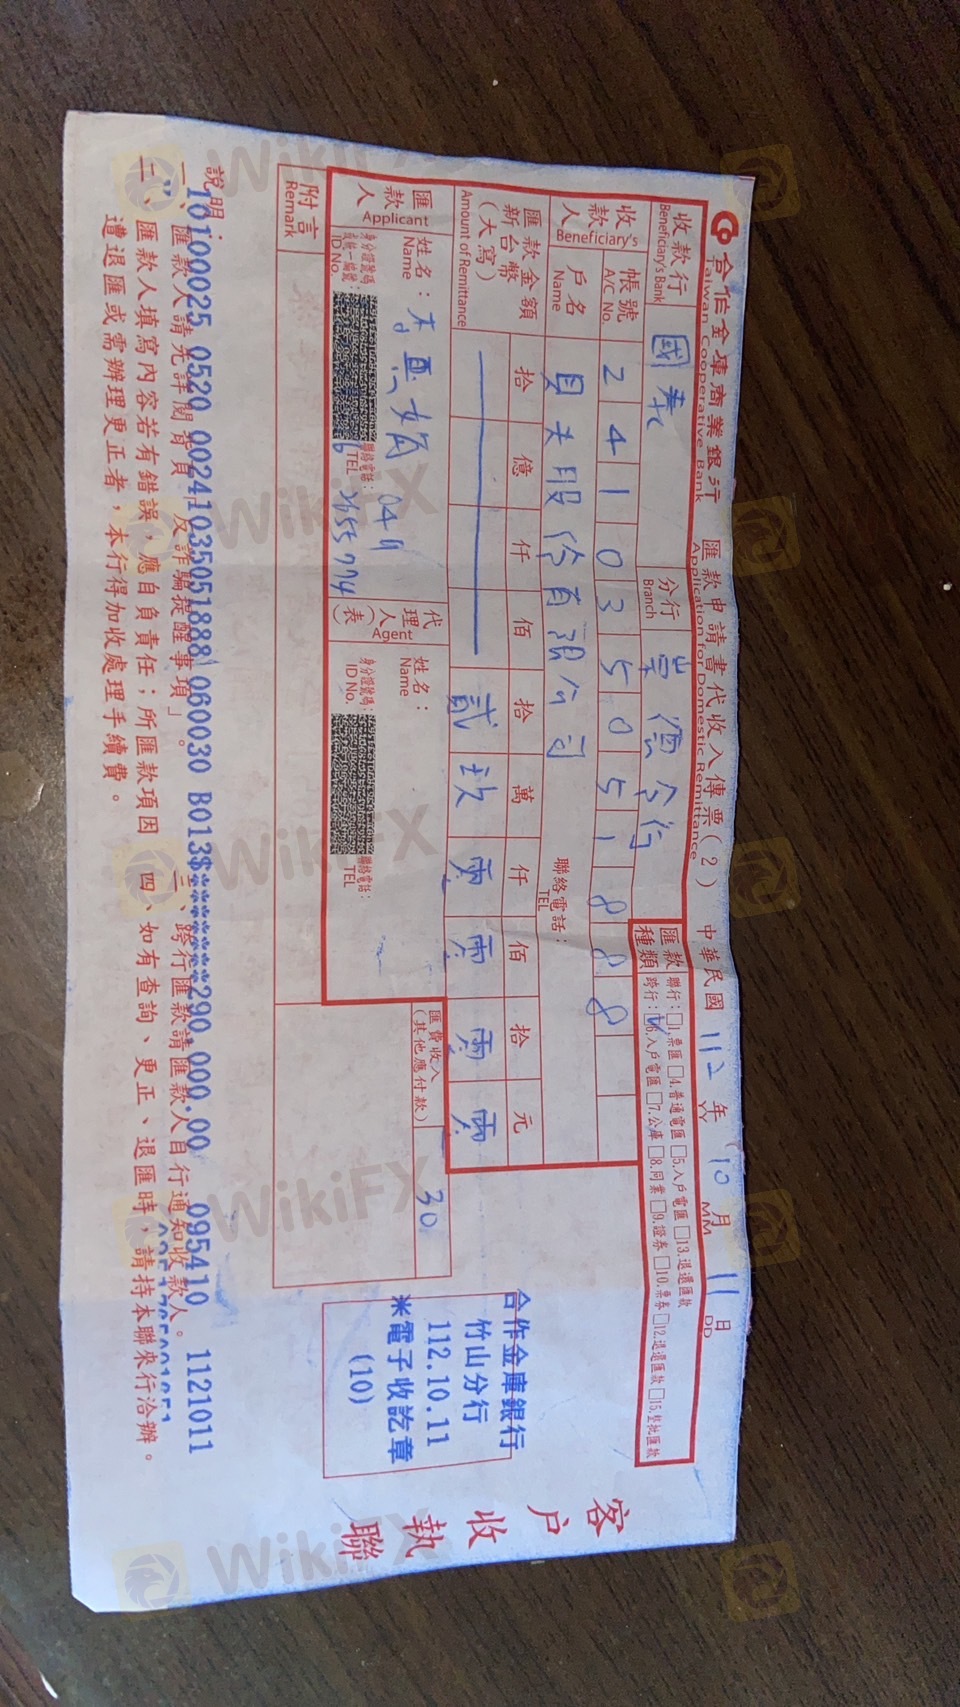 合作金庫商業銀行 匯款申請書代收入傳票(2) 中華民國 112 年 10 月 11 日
Taiwan Cooperative Bank Application for Domestic Remittance YY MM DD
收款行 國泰 分行
Beneficiary's Bank Branch
匯款種類 聯行：□1.票匯 □4.普通電匯 □5.入戶電匯 □13.退還匯款
跨行：☑6.入戶電匯 □7.公庫 □8.同業 □9.證券 □10.票券 □12.退還匯款 □15.整批匯款
收款人 Beneficiary
帳號 A/C No. 2 4 1 0 3 5 0 5 1 8 8 8
戶名 Name 股份有限公司 聯絡電話： TEL
匯款金額 新台幣 (大寫) Amount of Remittance
拾 億 仟 佰 拾 萬 仟 佰 拾 元
貳 玖 零 零 零 零
匯款人 Applicant
姓名： Name 049
身分證號碼 或統一編號： ID No. 聯絡電話： TEL 2655774
代理人(代表) Agent
姓名： Name
身分證號碼： ID No. 聯絡電話： TEL
匯費收入 (其他應付款) 30
附言 Remark
合作金庫銀行
竹山分行
112.10.11
※電子收訖章
(10)
客戶收執聯
說明：
10100025 0520 0024103505188 8 060030 B013$*******290,000.00 095410 1121011
一、匯款人請先詳閱背頁「反詐騙提醒事項」。 三、跨行匯款請匯款人自行通知收款人。
二、匯款人填寫內容若有錯誤，應自負責任；所匯款項因 四、如有查詢、更正、退匯時，請持本聯來行洽辦。
遭退匯或需辦理更正者，本行得加收處理手續費。
WikiFX